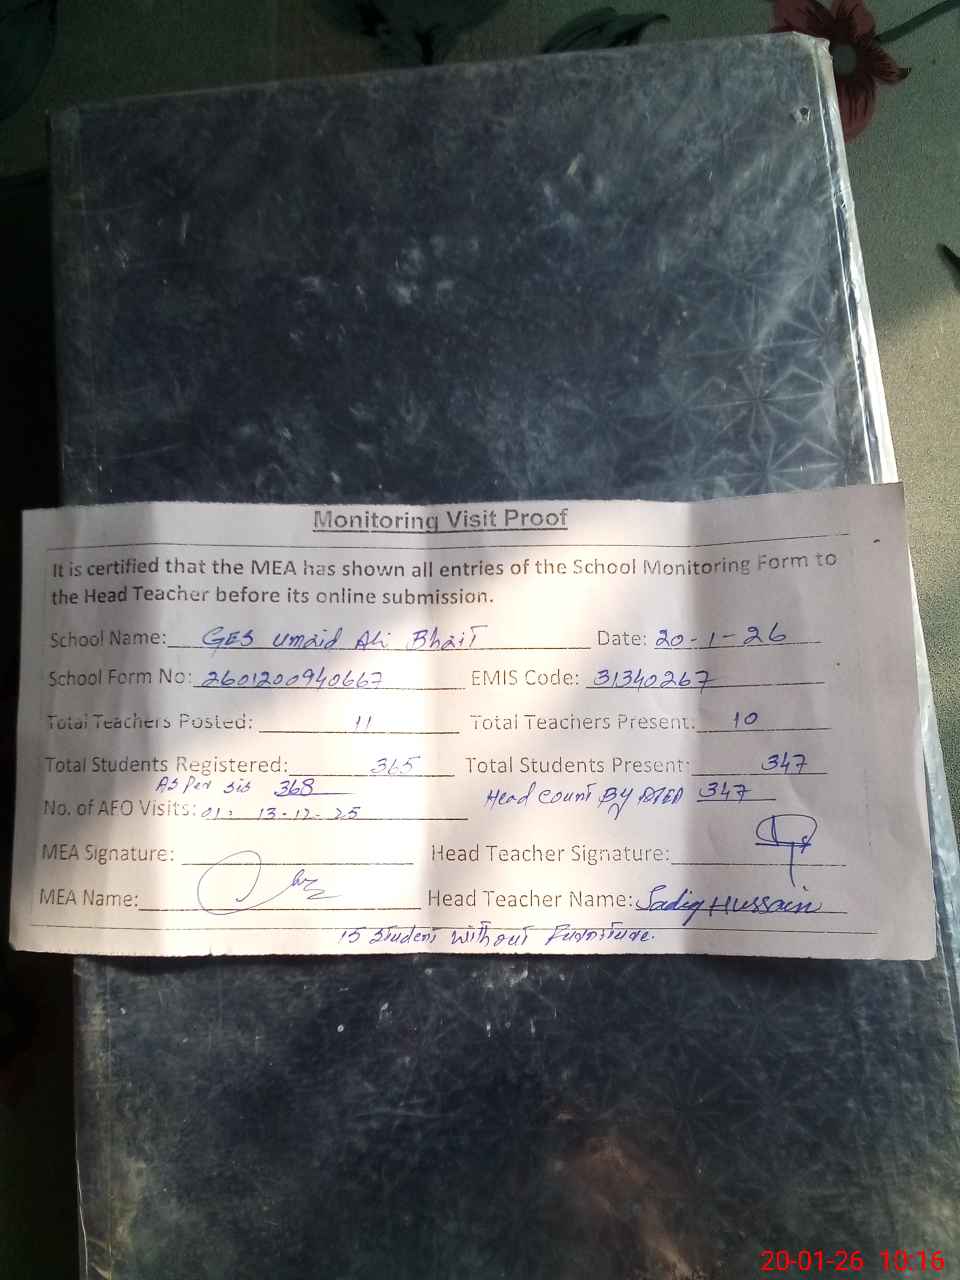 Monitoring Visit Proof
It is certified that the MEA has shown all entries of the School Monitoring Form to
the Head Teacher before its online submission.
School Name: GES Umaid Ali Bhait Date: 20-1-26
School Form No: 2601200940667 EMIS Code: 31340267
Total Teachers Posted: 11 Total Teachers Present: 10
Total Students Registered: 365 Total Students Present: 347
As Per sis 368 Head Count By 347
No. of AFO Visits: 01: 13-12-25
MEA Signature: Head Teacher Signature:
MEA Name: Head Teacher Name: Sadiq Hussain
15 Student without Furniture.
20-01-26 10:16